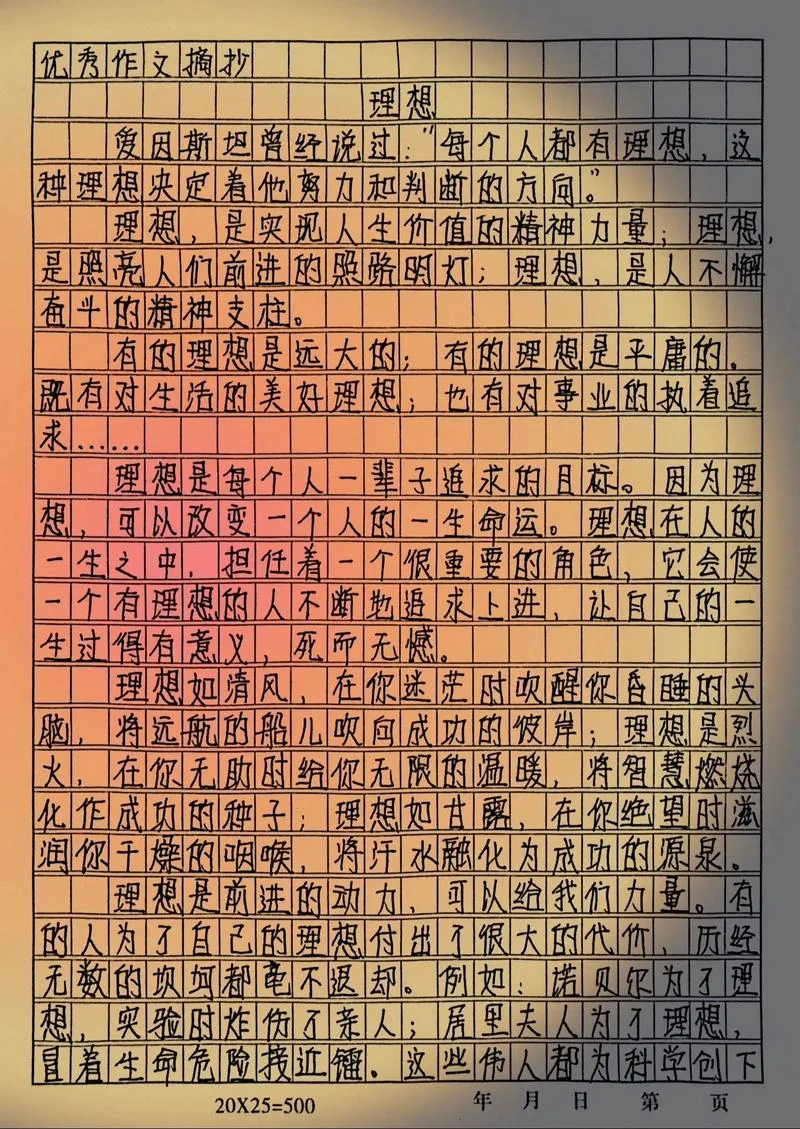 优秀作文摘抄
理想
爱因斯坦曾经说过:“每个人都有理想,这
种理想决定着他努力和判断的方向。”
理想,是实现人生价值的精神力量;理想,
是照亮人们前进的照路明灯;理想,是人不懈
奋斗的精神支柱。
有的理想是远大的;有的理想是平庸的。
既有对生活的美好理想;也有对事业的执着追
求……
理想是每个人一辈子追求的目标。因为理
想,可以改变一个人的一生命运。理想在人的
一生之中,担任着一个很重要的角色,它会使
一个有理想的人不断地追求上进,让自己的一
生过得有意义,死而无憾。
理想如清风,在你迷茫时吹醒你昏睡的头
脑,将远航的船儿吹向成功的彼岸;理想是烈
火,在你无助时给你无限的温暖,将智慧燃烧
化作成功的种子;理想如甘露,在你绝望时滋
润你干燥的咽喉,将汗水融化为成功的源泉。
理想是前进的动力,可以给我们力量。有
的人为了自己的理想付出了很大的代价,历经
无数的坎坷都毫不退却。例如:诺贝尔为了理
想,实验时炸伤了亲人;居里夫人为了理想,
冒着生命危险接近镭。这些伟人都为科学创下
20X25=500 年 月 日 第 页